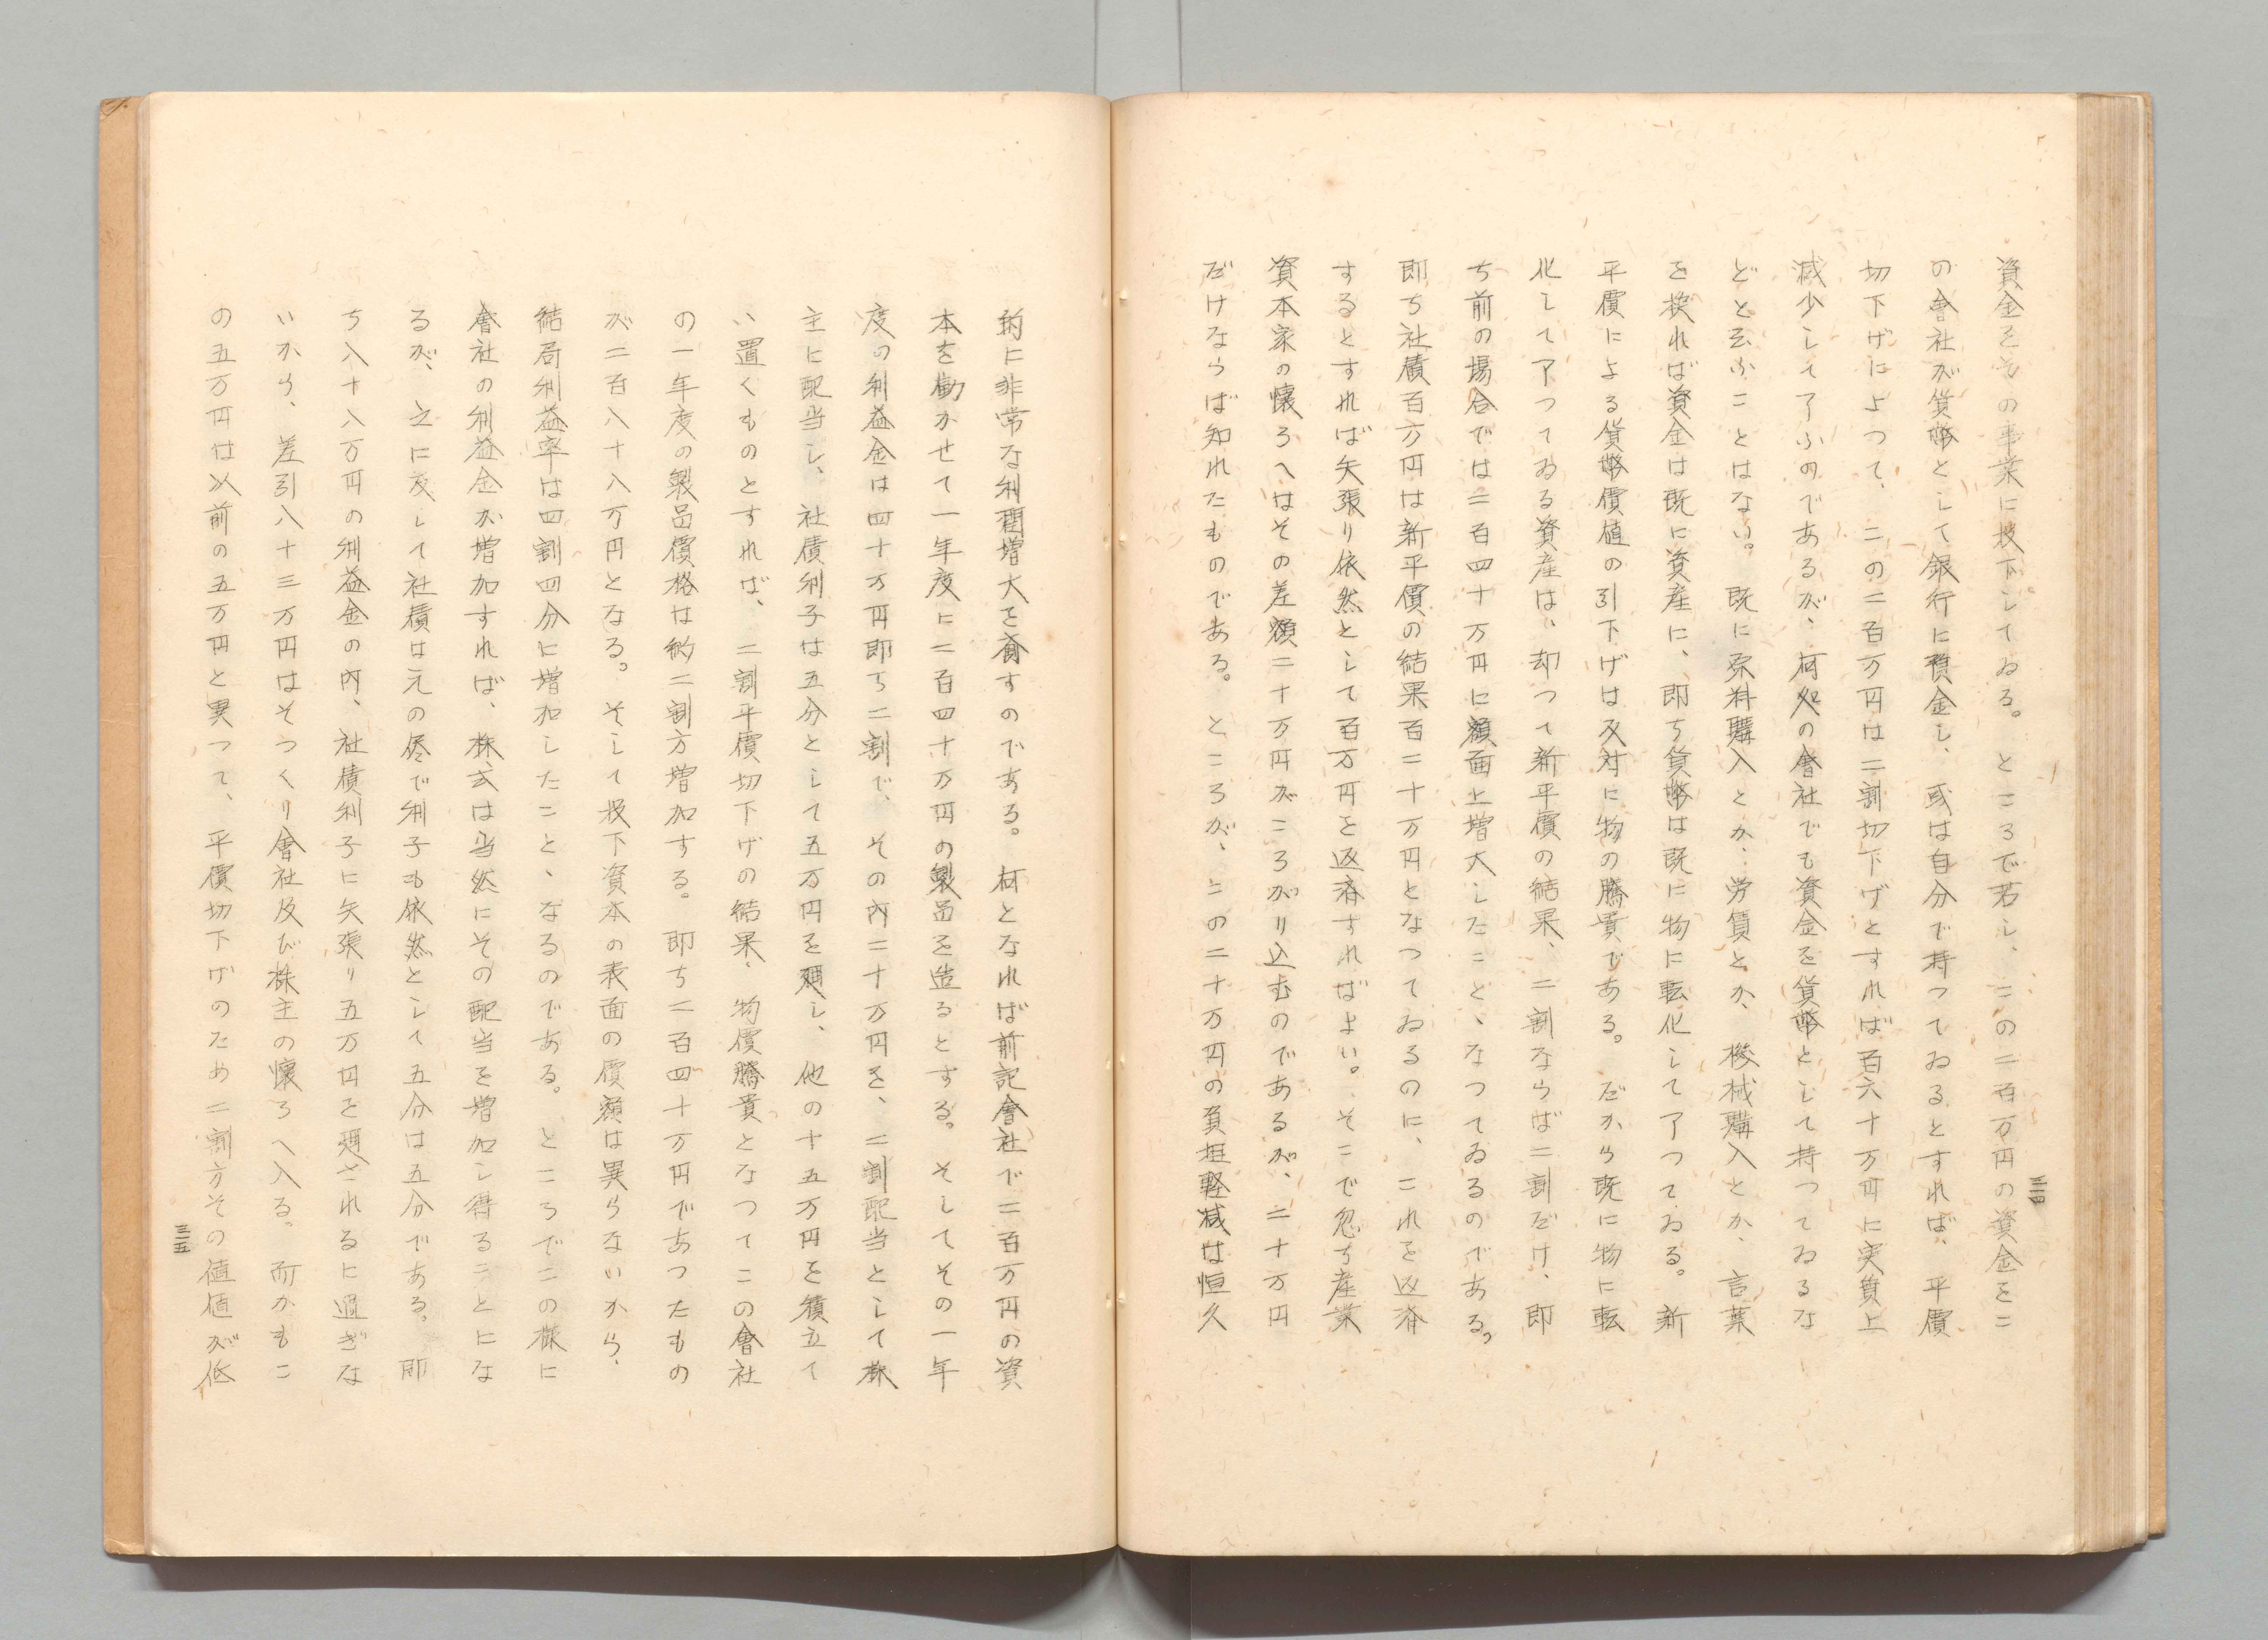 資金をその事業に投下してゐる。ところで若し、この二百万円の資金をこ
の會社が貨幣として銀行に預金し、或は自分で持つてゐるとすれば、平價
切下げによつて、この二百万円は二割切下げとすれば百六十万円に実質上
減少して了ふのであるが、何処の會社でも資金を貨幣として持つてゐるな
どと云ふことはない。既に原料購入とか、労賃とか、機械購入とか、言葉
を換れば資金は既に資産に、即ち貨幣は既に物に転化して了つてゐる。新
平價による貨幣價値の引下げは反対に物の騰貴である。だから既に物に転
化して了つてゐる資産は、却つて新平價の結果、二割ならば二割だけ、即
ち前の場合では二百四十万円に額面上増大したことゝなつてゐるのである。
即ち社債百万円は新平價の結果百二十万円となつてゐるのに、これを返済
するとすれば矢張り依然として百万円を返済すればよい。そこで忽ち産業
資本家の懐ろへはその差額二十万円がころがり込むのであるが、二十万円
だけならば知れたものである。ところが、この二十万円の負担軽減は恒久
三四
的に非常な利潤増大を齎すのである。何となれば前記會社で二百万円の資
本を動かせて一年度に二百四十万円の製品を造るとする。そしてその一年
度の利益金は四十万円即ち二割で、その内二十万円を、二割配当として株
主に配当し、社債利子は五分として五万円を廻し、他の十五万円を積立て
い置くものとすれば、二割平價切下げの結果、物價騰貴となつてこの會社
の一年度の製品價格は約二割方増加する。即ち二百四十万円であつたもの
が二百八十八万円となる。そして投下資本の表面の價額は異らないから、
結局利益率は四割四分に増加したことゝなるのである。ところでこの様に
會社の利益金が増加すれば、株式は当然にその配当を増加し得ることにな
るが、之に反して社債は元の儘で利子も依然として五分は五分である。即
ち八十八万円の利益金の内、社債利子に矢張り五万円を廻されるに過ぎな
いから、差引八十三万円はそつくり會社及び株主の懐ろへ入る。而かもこ
の五万円は以前の五万円と異つて、平價切下げのため二割方その値値が低
三五